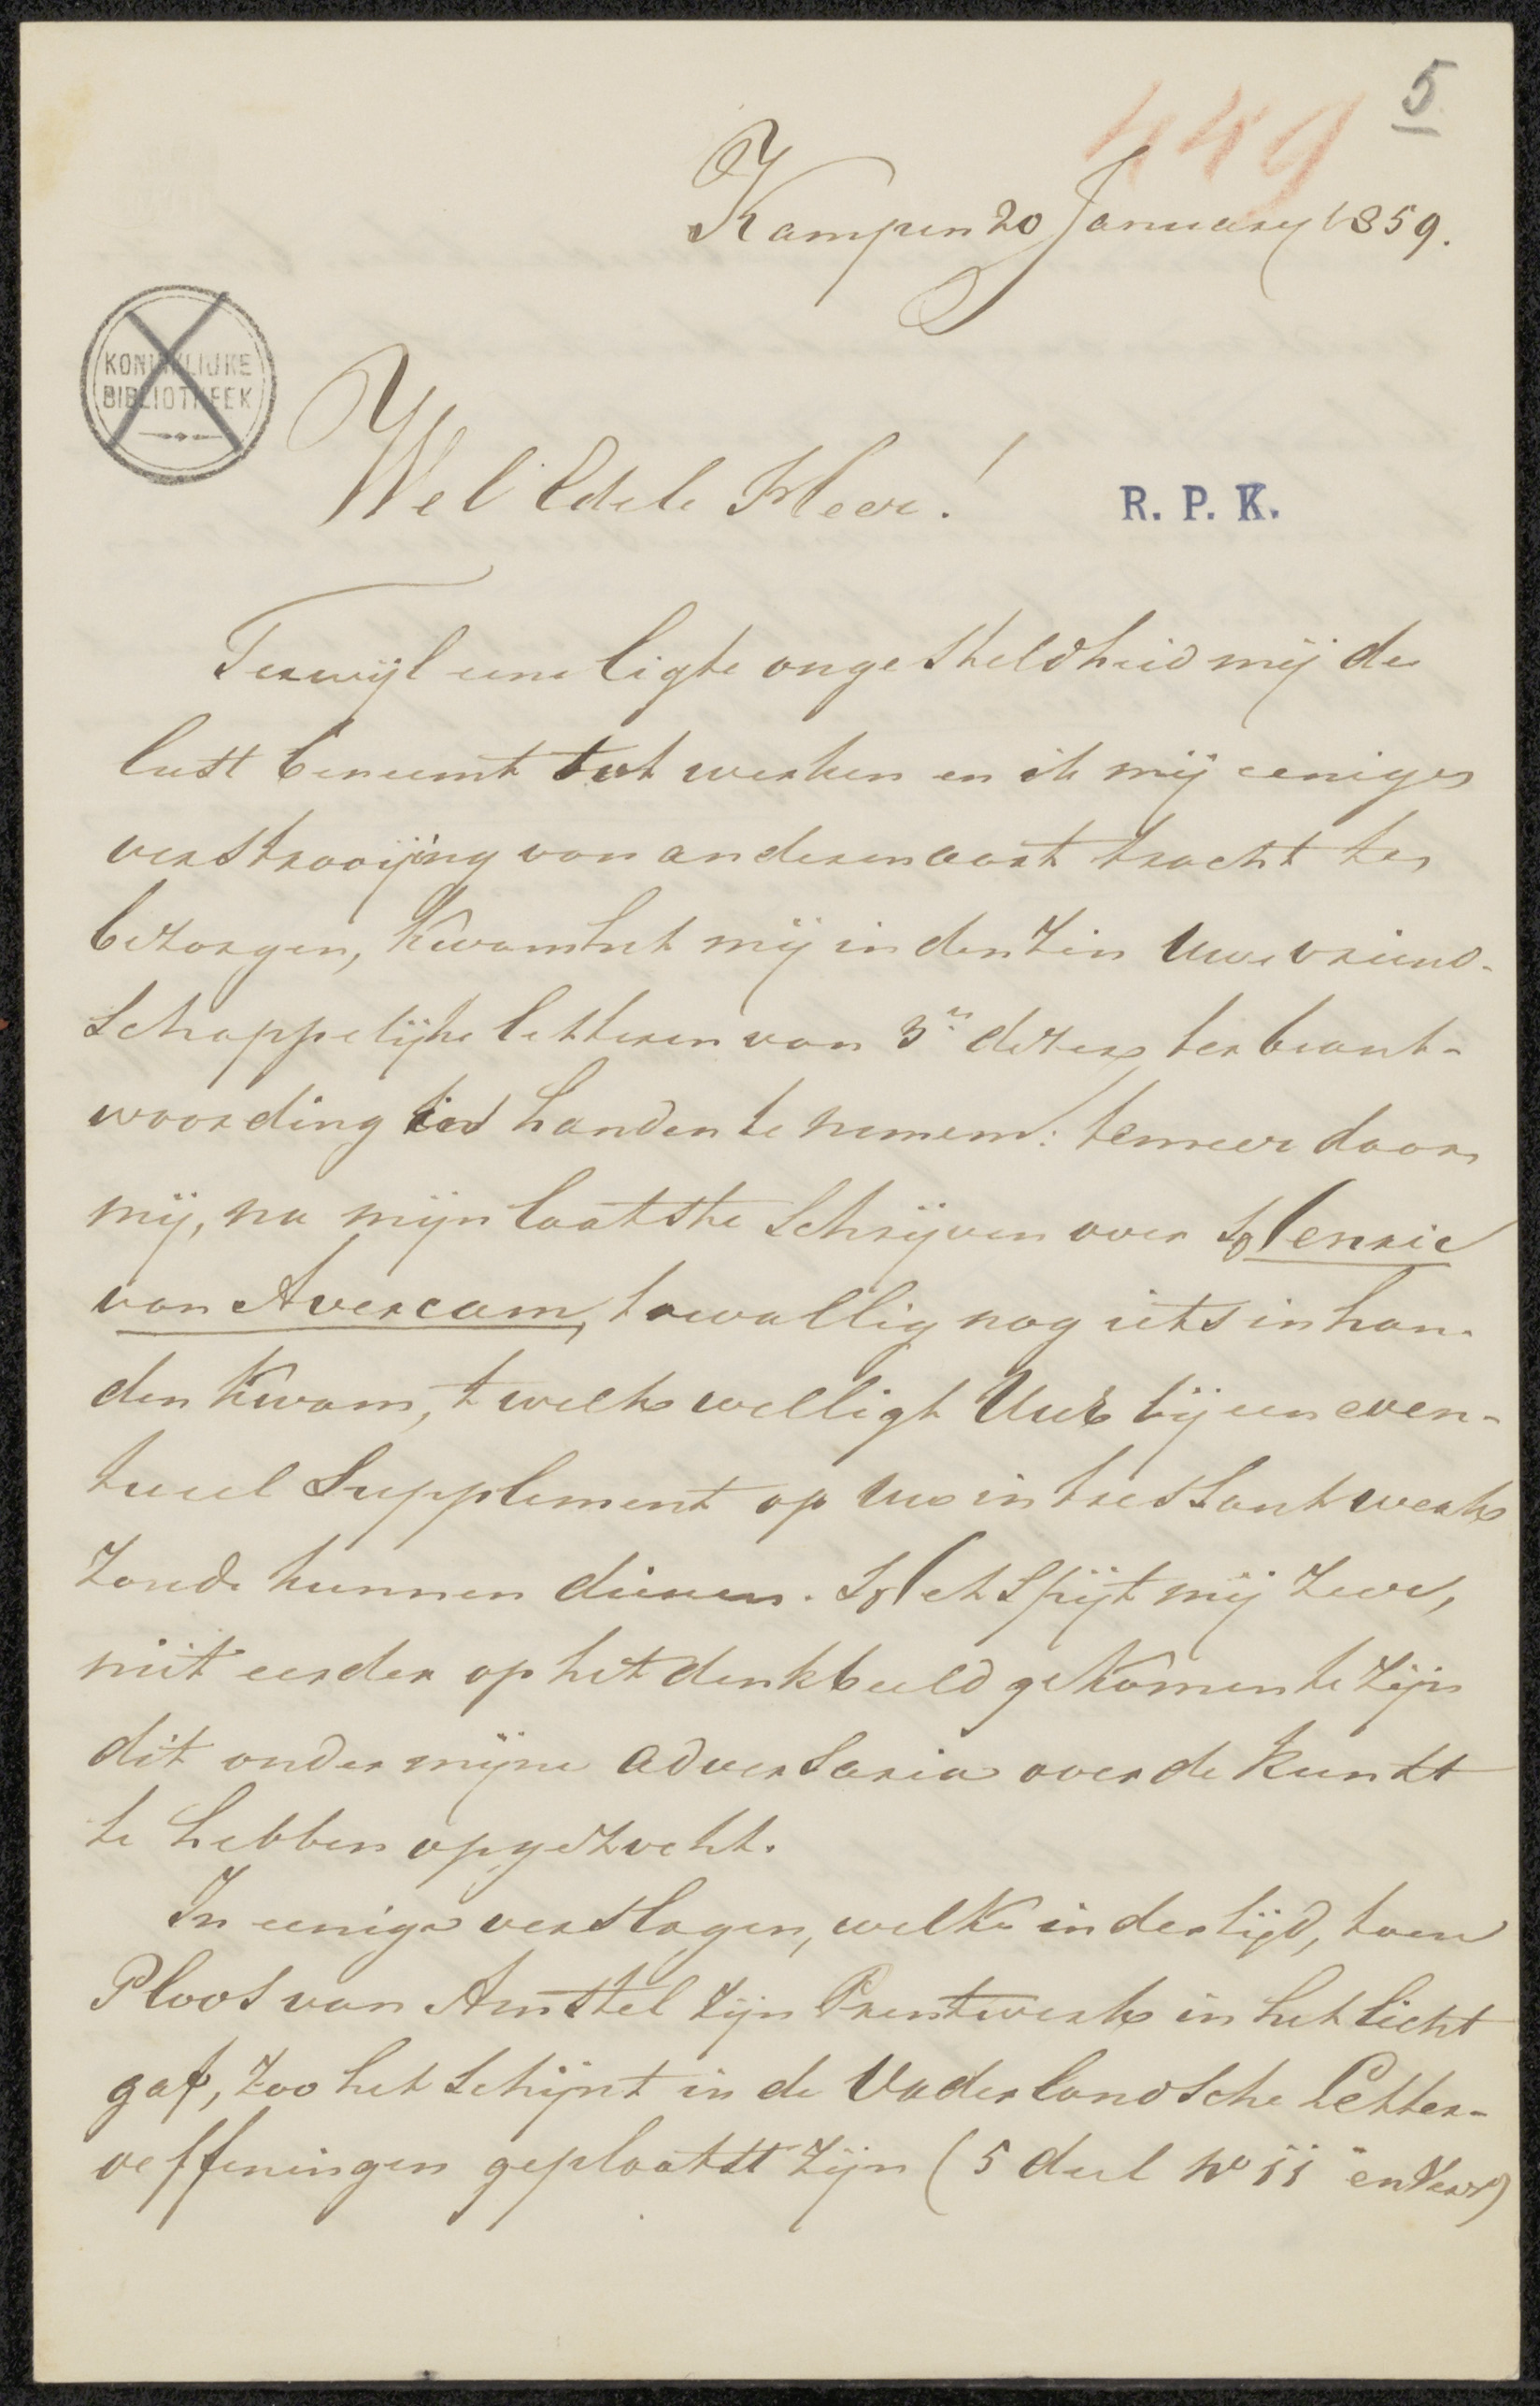 5
449
Kampen 20 January 1859.
KONINKLIJKE
BIBLIOTHEEK
Wel Edele Heer!
R. P. K.
Terwijl eene ligte ongesteldheid mij de
lust beneemt tot werken en ik mij eenige
verstrooijing van anderen aart tracht te
bezorgen, kwam het mij in den zin Uwe vriend-
schappelijke letteren van 3n dezer ter beant-
woording in handen te nemen: temeer daar
mij, na mijn laatste schrijven over Henric
van Avercam, toevallig nog iets in han-
den kwam, 't welk welligt UwE bij een even-
tueel Supplement op Uw intressant werk
zoude kunnen dienen. Het spijt mij zeer,
niet eerder op het denkbeeld gekomen te zijn
dit onder mijne adversaria over de kunst
te hebben opgezocht.
In eenige verslagen, welke in der tijd, toen
Ploos van Amstel zijn Prentwerk in het licht
gaf, zoo het schijnt in de Vaderlandsche Letter-
oeffeningen geplaatst zijn (5 deel No 11 en